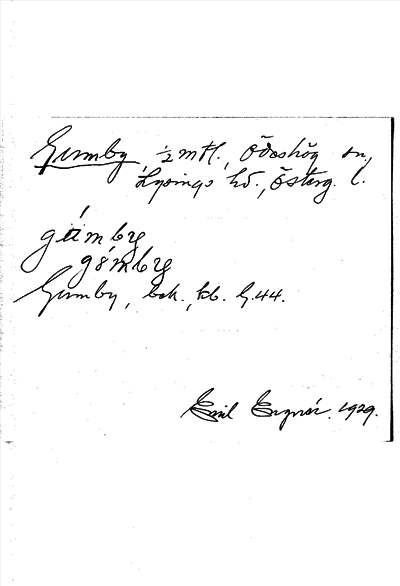 Gumby, ½ mtl., Ödeshög sn,
Lysings hd., Österg. l.
gúmby
gómby
Gumby, bok., kb. G.44.
Emil 1929.